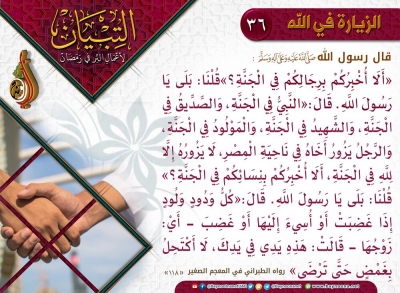 الزيارة في الله
٣٦
التبيان
لأعمال البر في رمضان
قال رسول الله ﷺ :
«أَلَا أُخْبِرُكُمْ بِرِجَالِكُمْ فِي الْجَنَّةِ؟» قُلْنَا: بَلَى يَا
رَسُولَ اللهِ. قَالَ: «النَّبِيُّ فِي الْجَنَّةِ، وَالصِّدِّيقُ فِي
الْجَنَّةِ، وَالشَّهِيدُ فِي الْجَنَّةِ، وَالْمَوْلُودُ فِي الْجَنَّةِ،
وَالرَّجُلُ يَزُورُ أَخَاهُ فِي نَاحِيَةِ الْمِصْرِ، لَا يَزُورُهُ إِلَّا
لِلَّهِ فِي الْجَنَّةِ، أَلَا أُخْبِرُكُمْ بِنِسَائِكُمْ فِي الْجَنَّةِ؟»
قُلْنَا: بَلَى يَا رَسُولَ اللهِ. قَالَ: «كُلُّ وَدُودٍ وَلُودٍ
إِذَا غَضِبَتْ أَوْ أُسِيءَ إِلَيْهَا أَوْ غَضِبَ - أَيْ:
زَوْجُهَا - قَالَتْ: هَذِهِ يَدِي فِي يَدِكَ، لَا أَكْتَحِلُ
بِغَمْضٍ حَتَّى تَرْضَى» رواه الطبراني في المعجم الصغير «١١٨»